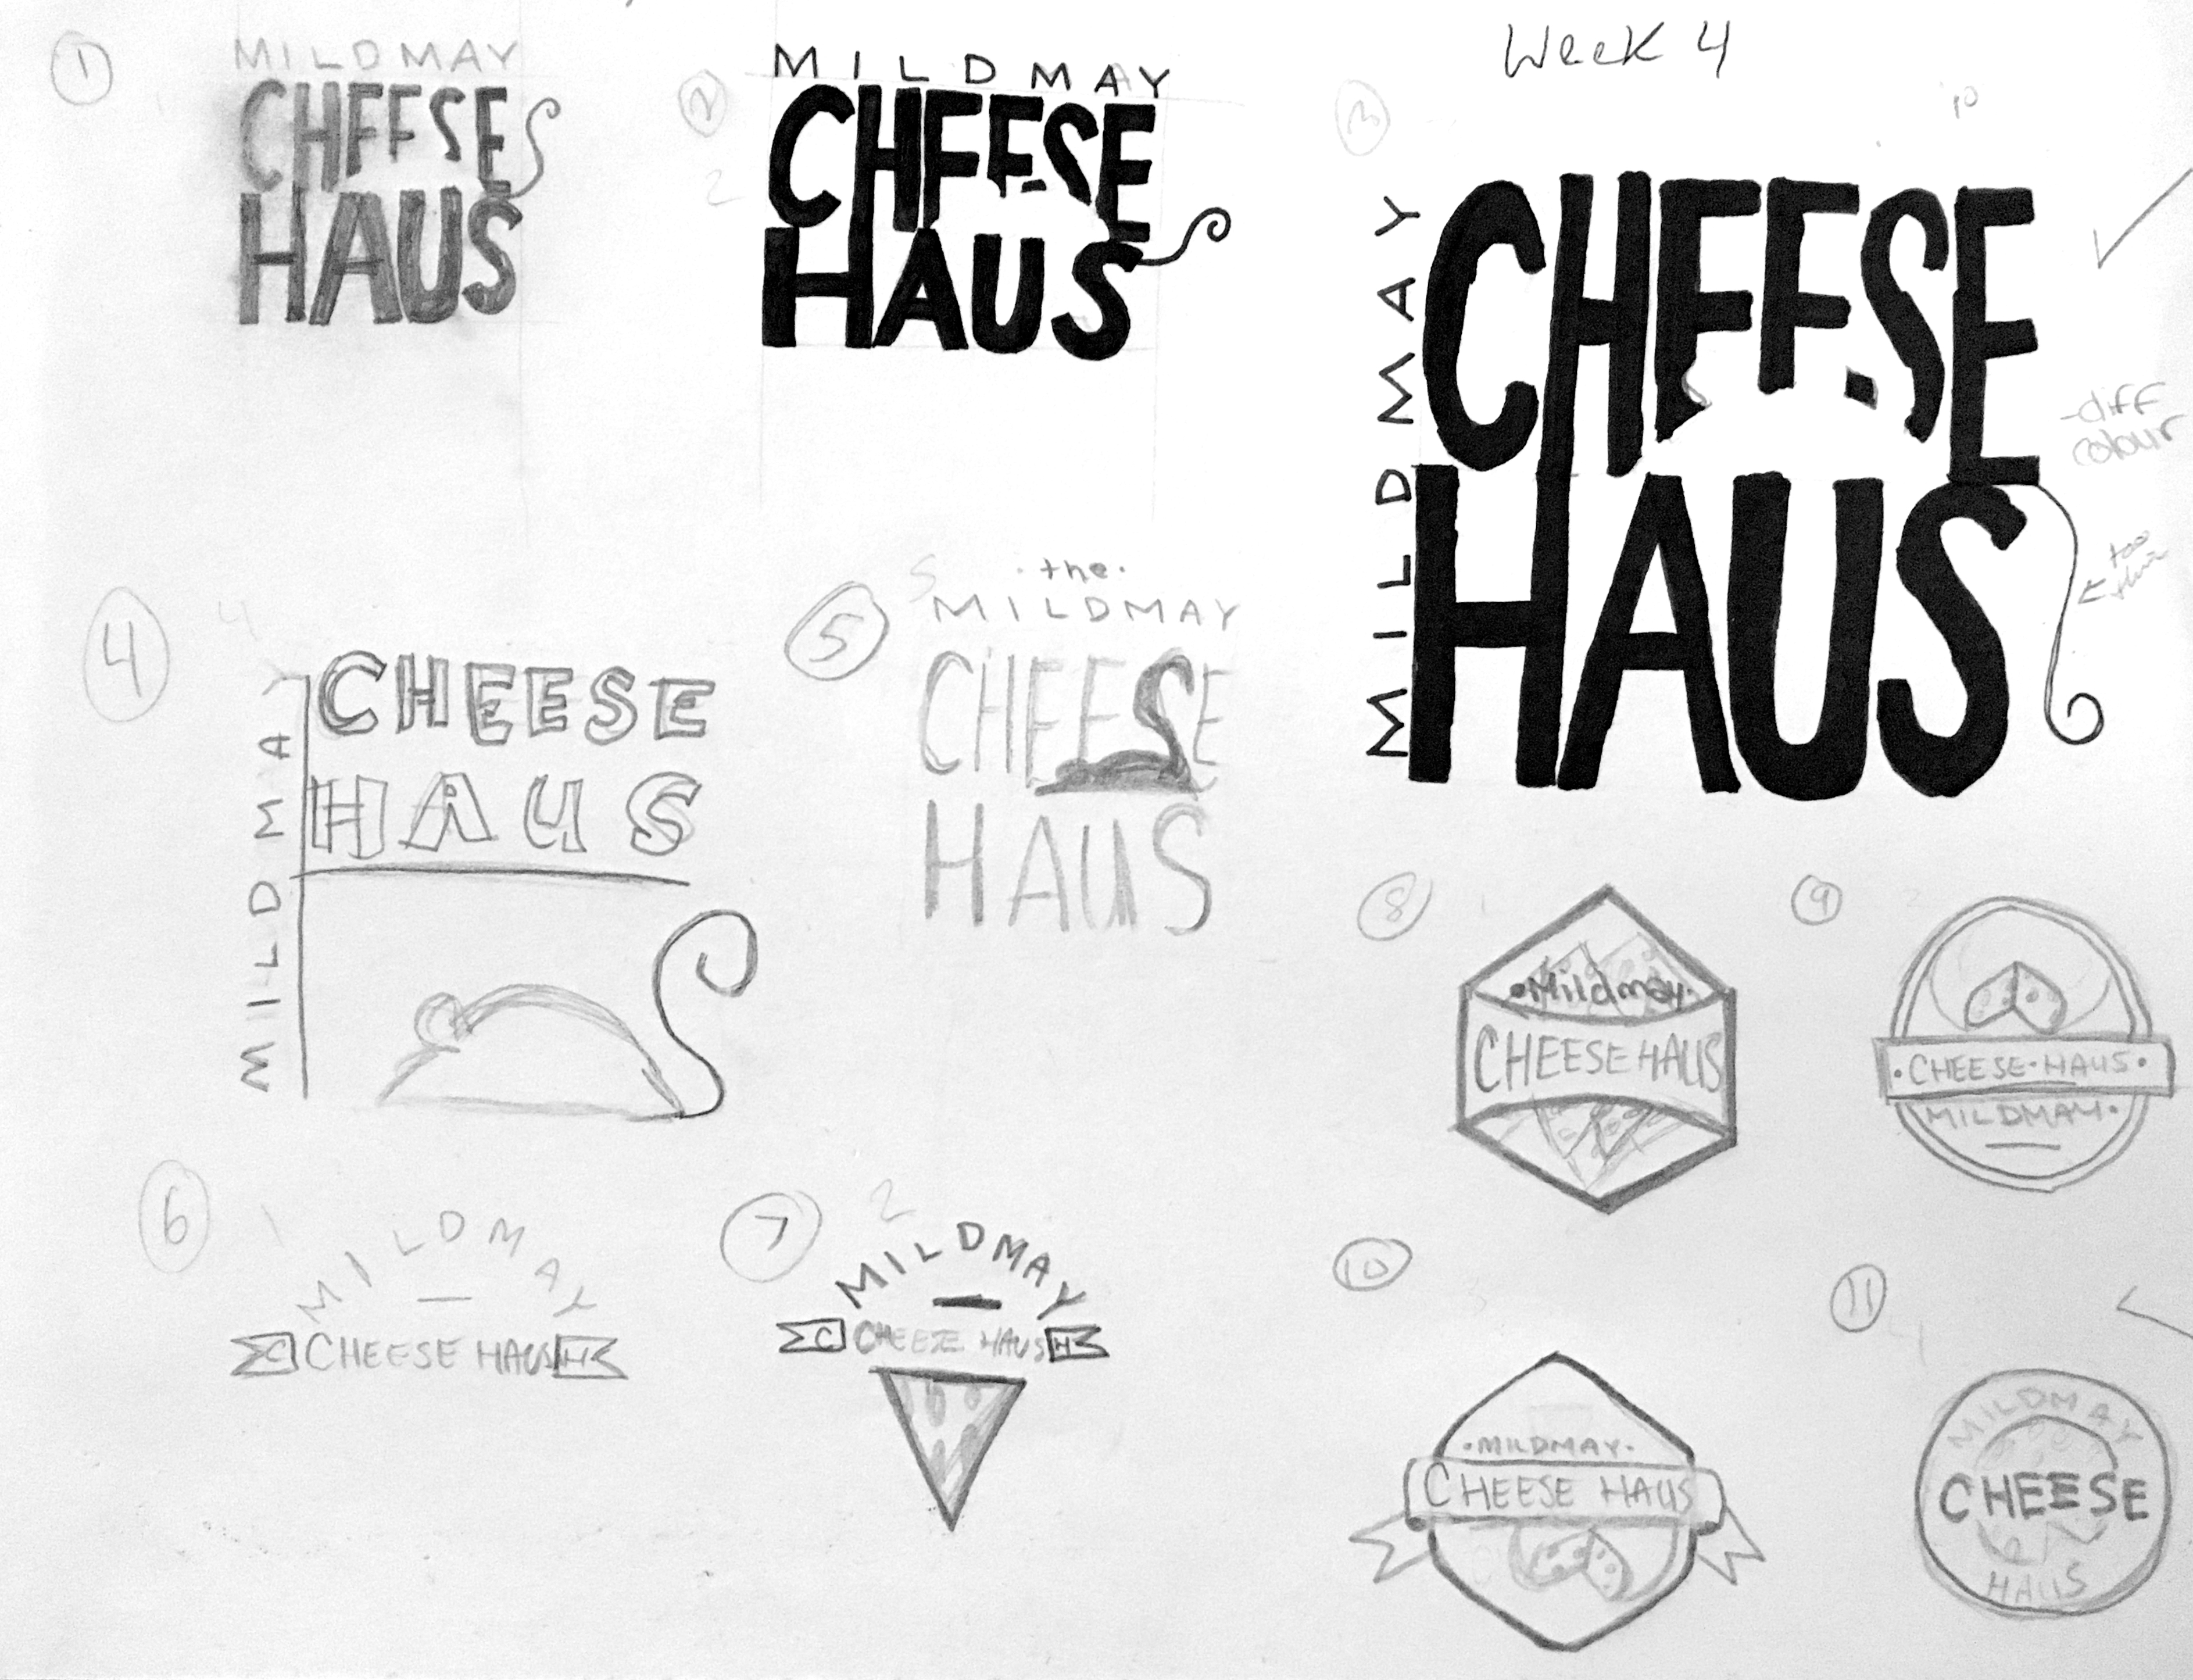 Week 4
1
MILDMAY
CHEESE
HAUS
2
2
MILDMAY
CHEESE
HAUS
3
10
MILDMAY
CHEESE
HAUS
-diff
colour
too
thin
4
4
MILDMAY
CHEESE
HAUS
5
5
·the·
MILDMAY
CHEESE
HAUS
6
1
MILDMAY
C CHEESE HAUS H
7
2
MILDMAY
C CHEESE HAUS H
8
1
·Mildmay·
CHEESE HAUS
9
2
·CHEESE·HAUS·
MILDMAY·
10
3
·MILDMAY·
CHEESE HAUS
11
4
MILDMAY
CHEESE
HAUS